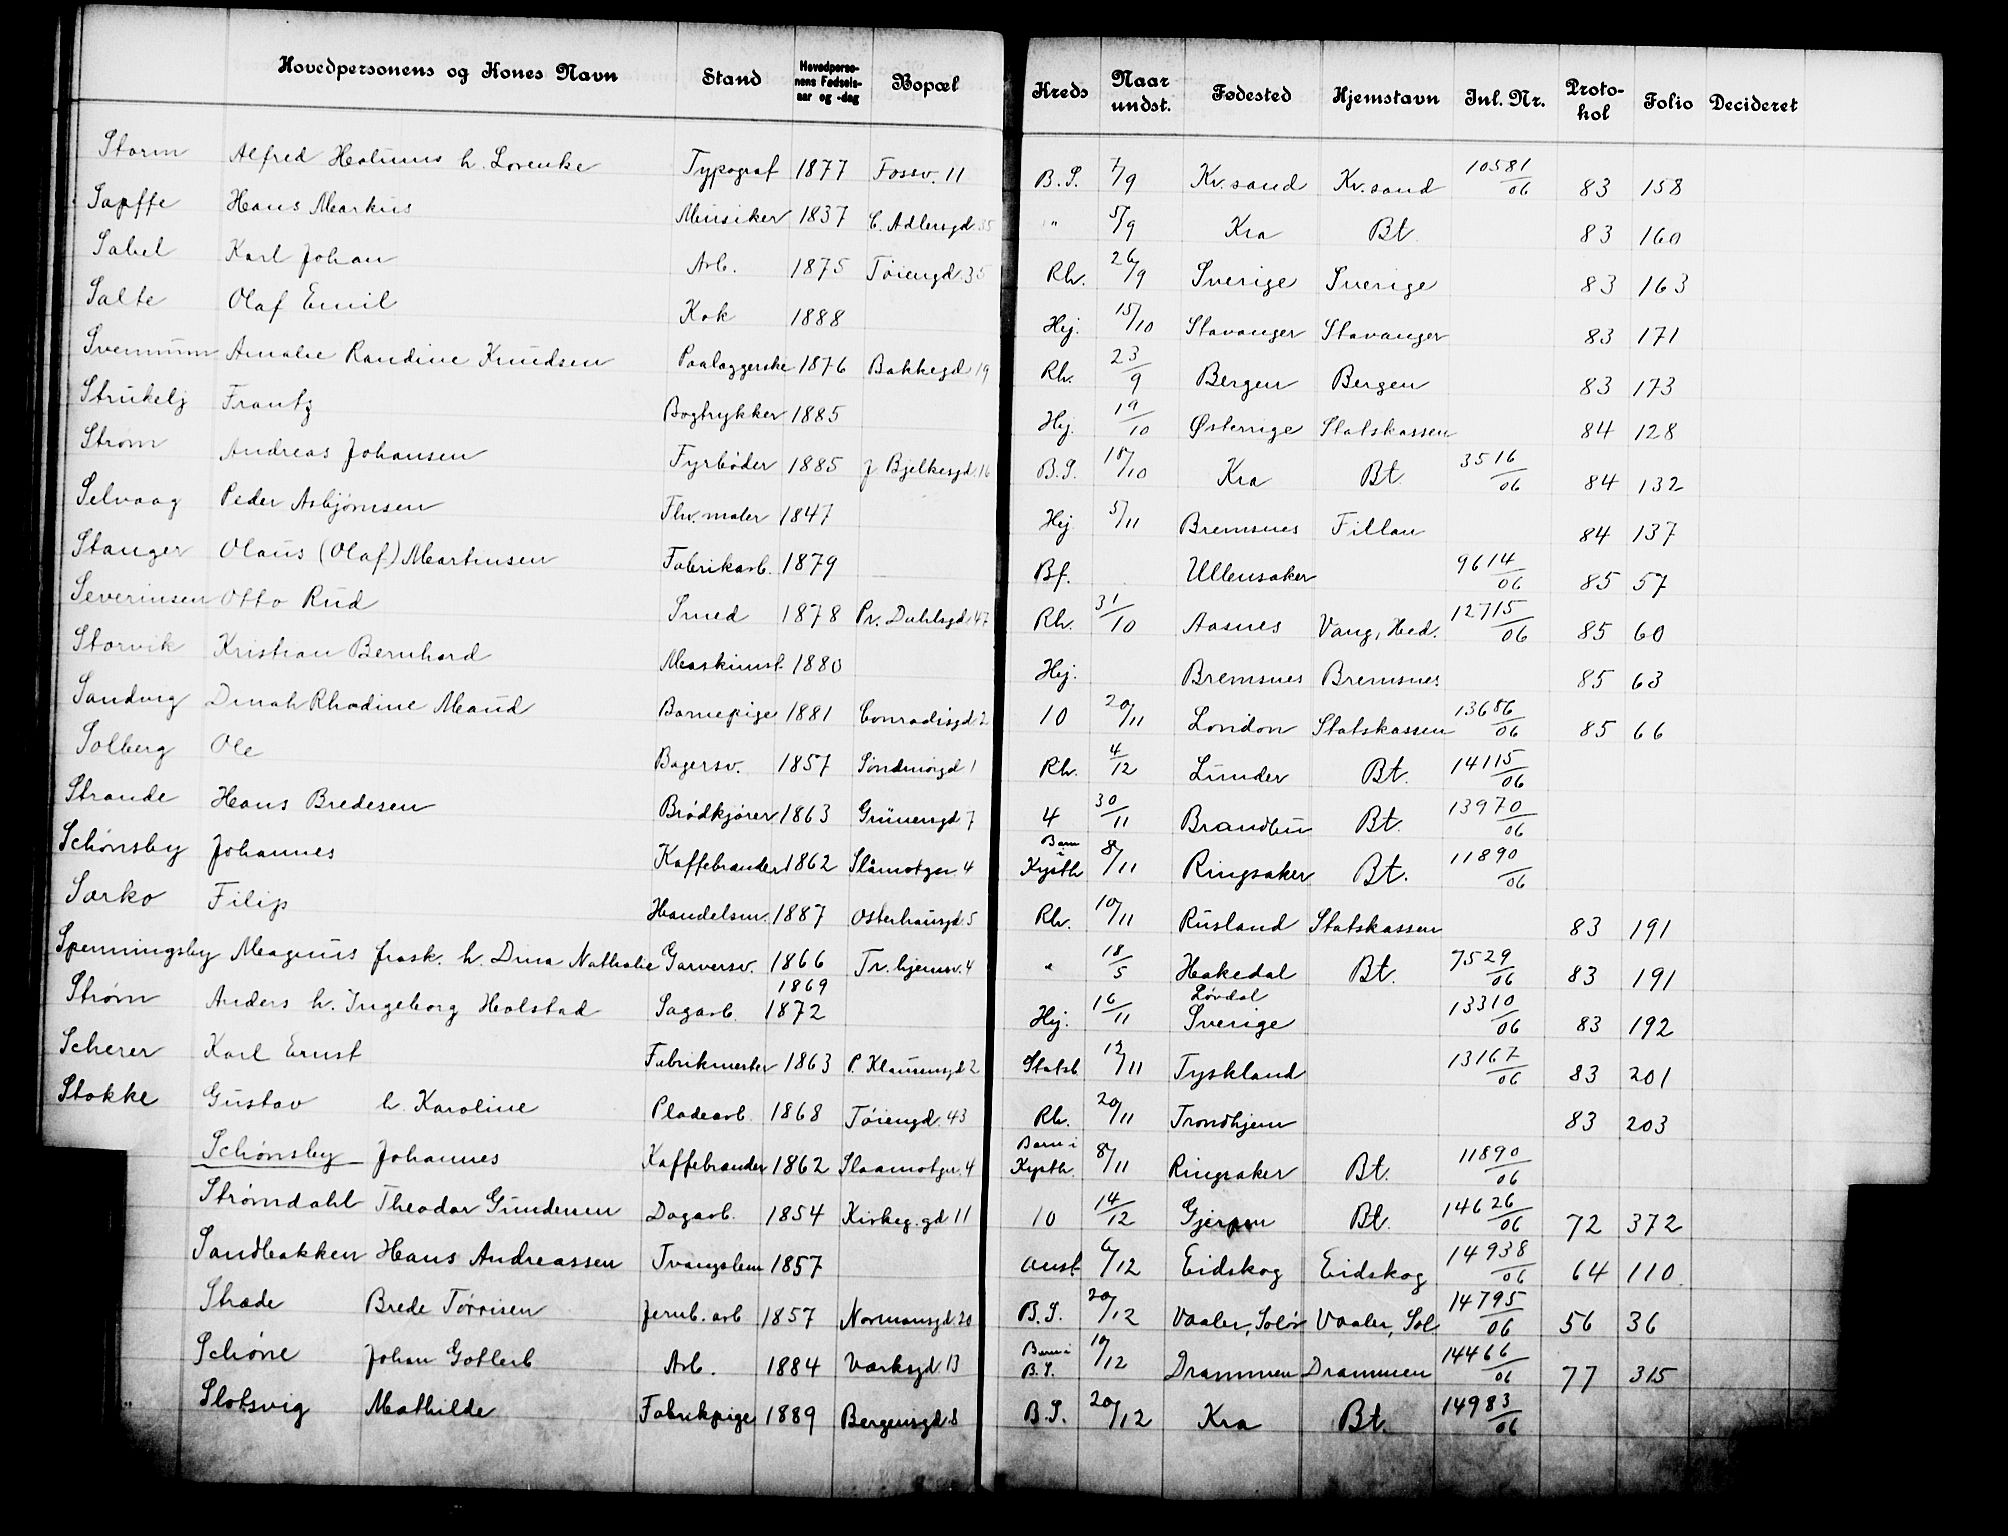 Hovedpersonens og Kones Navn Stand Hovedpersonens Fødselsaar og -dag Bopæl Kreds Naar undst. Fødested Hjemstavn Jnl. Nr. Protokol Folio Decideret
Storm Alfred h. Lovenke Typograf 1877 Fossv. 11 B.S. 7/9 Kr.sand Kr.sand 10581/06 83 158
Sapffe Hans Markus Musiker 1837 C. Adlersgd. 35 " 5/9 Kra Bt. 83 160
Sabel Karl Johan Arb. 1875 Tøiengd. 35 Rh. 26/9 Sverige Sverige 83 163
Salte Olaf Emil Kok 1888 Hej. 15/10 Stavanger Stavanger 83 171
Svemum Amalie Randine Knudsen Paalæggerske 1876 Bakkegd 19 Rh. 23/9 Bergen Bergen 83 173
Strukelj Frantz Bogtrykker 1885 Hej. 19/10 Østerrige Statskassen 84 128
Strøm Andreas Johansen Fyrbøder 1885 J Bjelkesgd. 16 B.S. 18/10 Kra Bt. 3516/06 84 132
Selvaag Peder Asbjørnsen Fhv. maler 1847 Hej 5/11 Bremsnes Fillan 84 137
Stanger Olaus (Olaf) Martinsen Fabrikarb. 1879 Bf. Ullensaker 9614/06 85 57
Severinsen Otto Rud Smed 1878 Pr. Dahlsgd. 47 Rh. 31/10 Aasnes Vang, Hed. 12715/06 85 60
Storvik Kristian Bernhard Maskinist 1880 Hej. Bremsnes Bremsnes 85 63
Sandvig Dinah Rhodine Maud Barnepige 1881 Conradisgd 2 10 20/11 London Statskassen 13686/06 85 66
Solberg Ole Bagersv. 1857 Søndmørgd 1 Rh. 4/12 Lunder Bt. 14115/06
Strande Hans Bredesen Brødkjører 1863 Grünersgd 7 4 30/11 Brandbu Bt. 13970/06
Schønsby Johannes Kaffebrænder 1862 Slåmotgn 4 Barn i Kysth 8/11 Ringsaker Bt. 11890/06
Sarko Filip Handelsm. 1887 Osterhausgd 5 Rh. 10/11 Rusland Statskassen 83 191
Spenningsby Magnus frask. h. Dina Nathalie Garversv. 1866 1869 Tr.hjemsv. 4 " 18/5 Hakedal Bt. 7529/06 83 191
Strøm Anders h. Ingeborg Halstad Sagarb. 1872 Hej. 16/11 Løvdal Sverige 13310/06 83 192
Scherer Karl Ernst Fabrikmester 1863 P. Klausensgd 2 Statsb 12/11 Tyskland 13167/06 83 201
Stokke Gustav h. Karoline Pladearb. 1868 Tøiengd. 43 Rh. 20/11 Trondhjem 83 203
Schønsby Johannes Kaffebrænder 1862 Slaamotgn. 4 Barn i Kysth. 8/11 Ringsaker Bt. 11890/06
Strømdahl Theodor Gundersen Dagarb. 1854 Kirkeg.gd 11 10 14/12 Gjerpen Bt. 14626/06 72 372
Sandbakken Hans Andreassen Tvangslem 1857 Anst 6/12 Eidskog Eidskog 14938/06 64 110
Stræde Brede Tørrisen Jernb. arb 1857 Normansgd. 20 B.S. 20/12 Vaaler, Solør Vaaler, Sol. 14795/06 56 36
Schøne Johan Gotlieb Arb. 1884 Værksgd. 13 Barn i B.S. 10/12 Drammen Drammen 14466/06 77 315
Slotsvig Mathilde Fabrikpige 1889 Bergensgd 8 B.S. 20/12 Kra Bt. 14983/06